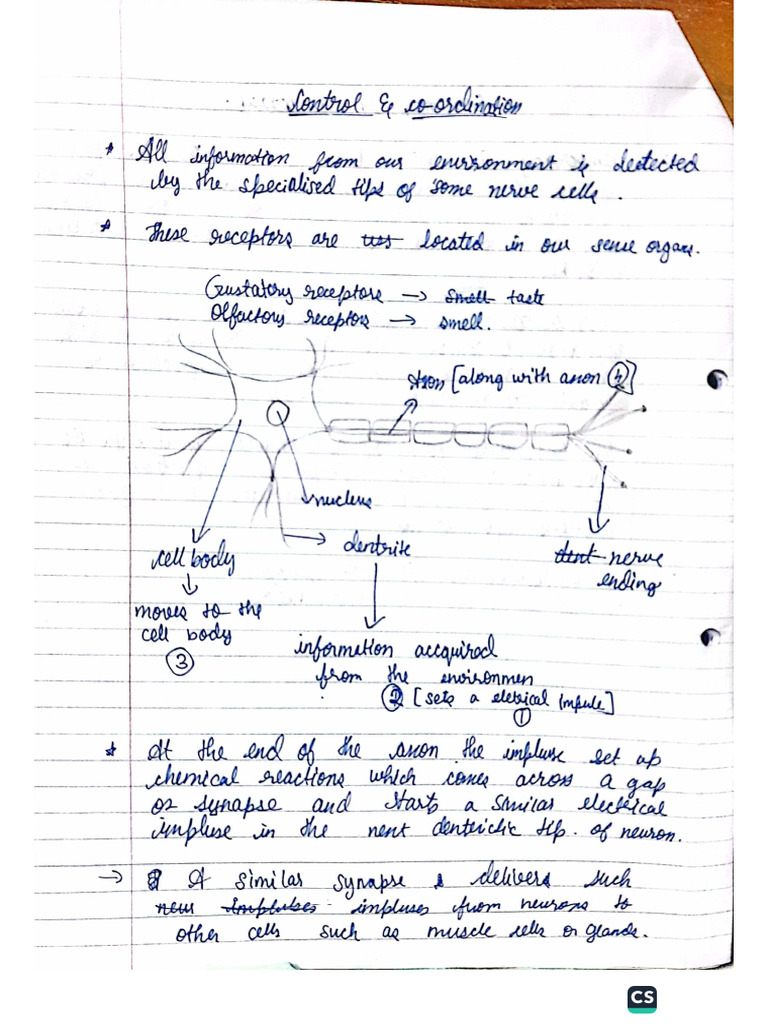 Control & co-ordination
* All information from our environment is detected
by the specialised tips of some nerve cells.
* These receptors are uss located in our sense organs.
Gustatory receptors → smell taste
Olfactory receptors → smell.
Axon [along with axon 4]
nucleus
cell body
dentrite
dent nerve
ending
moves to the
cell body
3
information accquired
from the environmen
2 [sets a eletrical impule]
1
* At the end of the axon the impluse set up
chemical reactions which cones across a gap
or synapse and starts a similar electrical
impluse in the next dentrictic tip. of neuron.
→ A similar synapse delivers such
new implulses impluses from neurons to
other cells such as muscle cells or glands.
CS